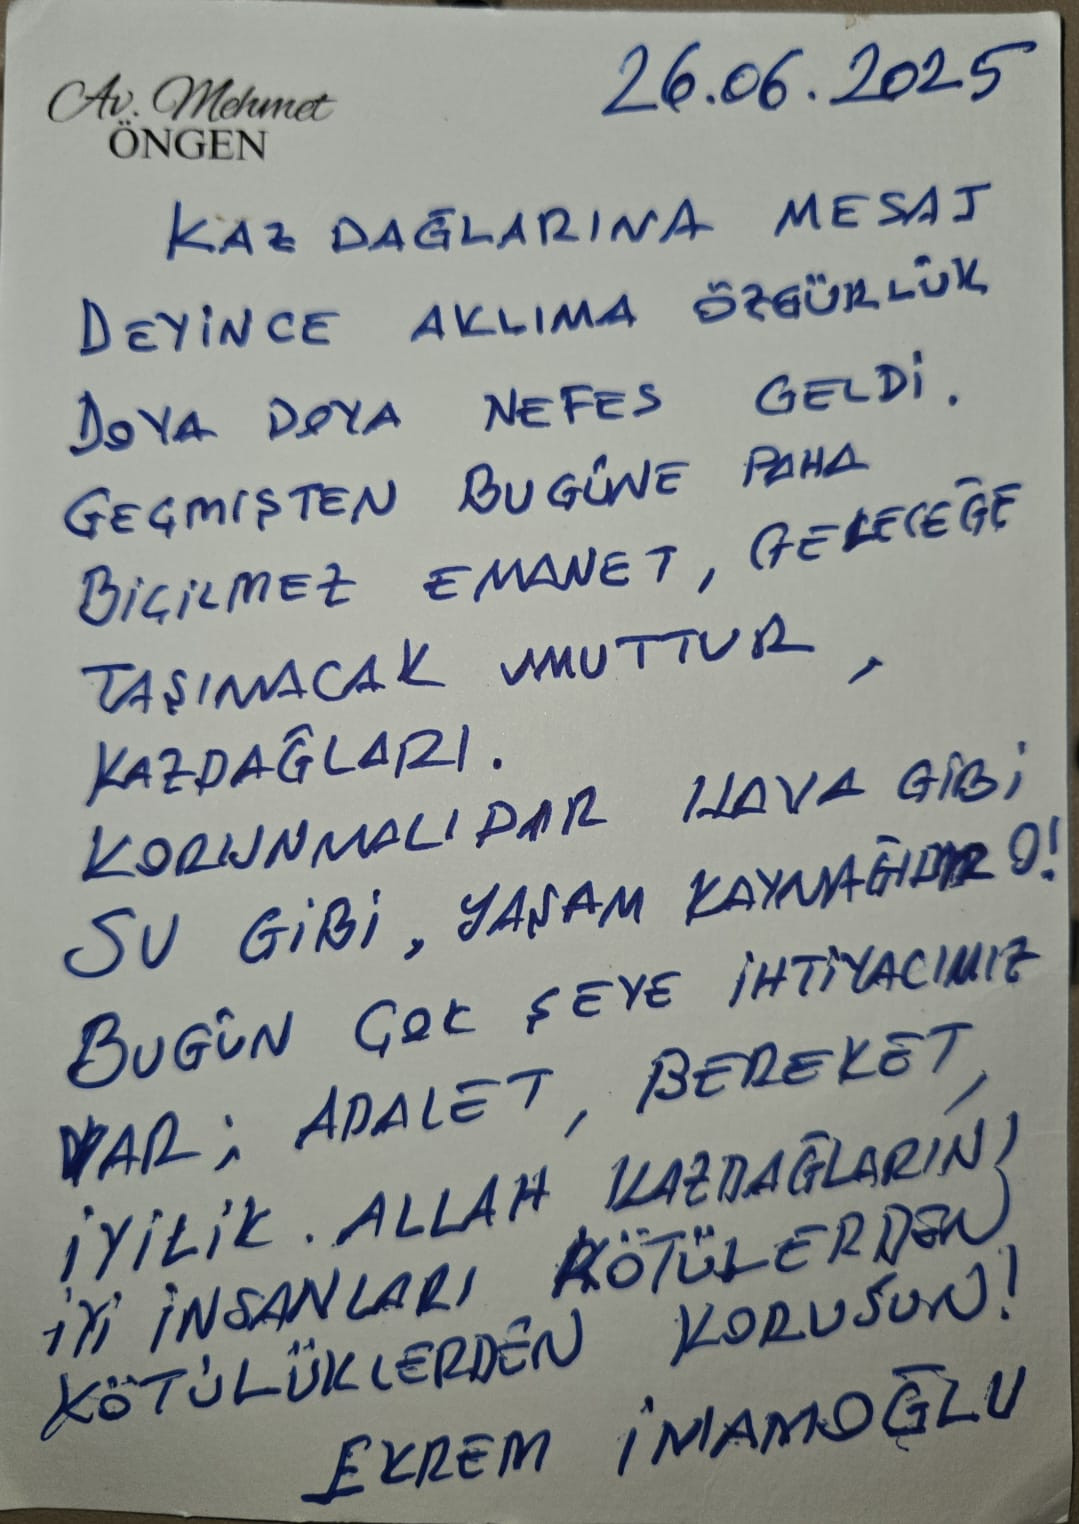 Av. Mehmet
ÖNGEN
26.06.2025
KAZ DAĞLARINA MESAJ
DEYİNCE AKLIMA ÖZGÜRLÜK
DOYA DOYA NEFES GELDİ.
GEÇMİŞTEN BUGÜNE PAHA
BİÇİLMEZ EMANET, GELECEĞE
TAŞINACAK UMUTTUR,
KAZDAĞLARI.
KORUNMALIDIR HAVA GİBİ
SU GİBİ, YAŞAM KAYNAĞIDIR O!
BUGÜN ÇOK ŞEYE İHTİYACIMIZ
VAR; ADALET, BEREKET,
İYİLİK. ALLAH KAZDAĞLARINI
İYİ İNSANLARI KÖTÜLERDEN,
KÖTÜLÜKLERDEN KORUSUN!
EKREM İMAMOĞLU